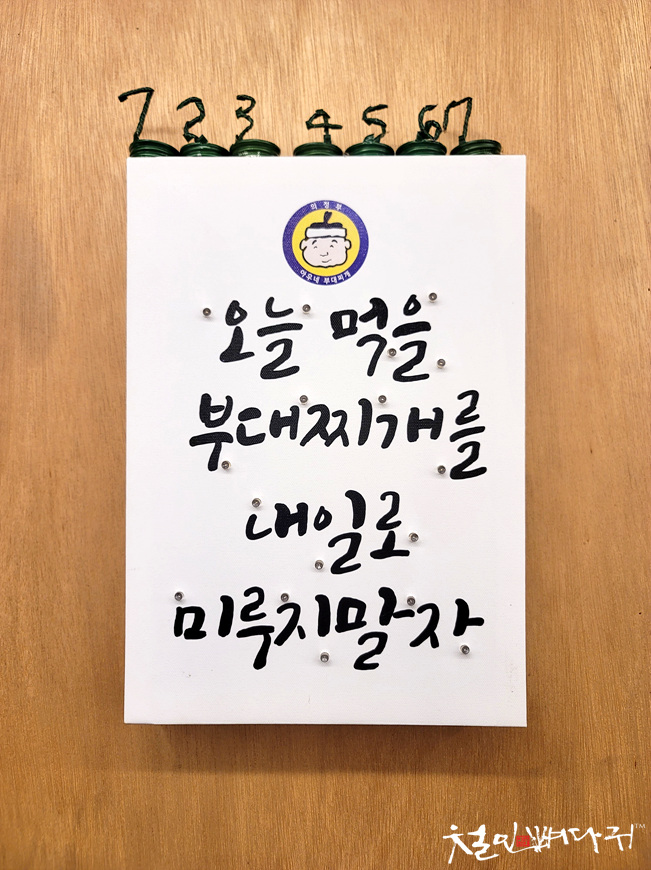 1 2 3 4 5 6 7
의정부
아우네 부대찌개
오늘 먹을
부대찌개를
내일로
미루지말자
철인뼈다귀™